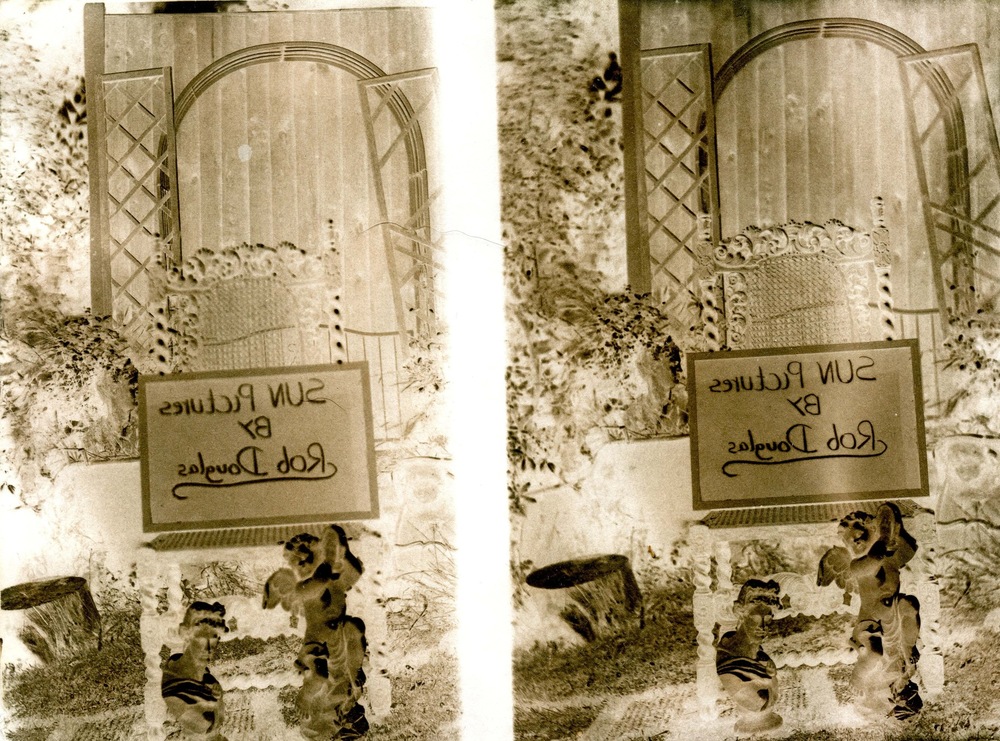 SUN Pictures
BY
Rob Douglas
SUN Pictures
BY
Rob Douglas